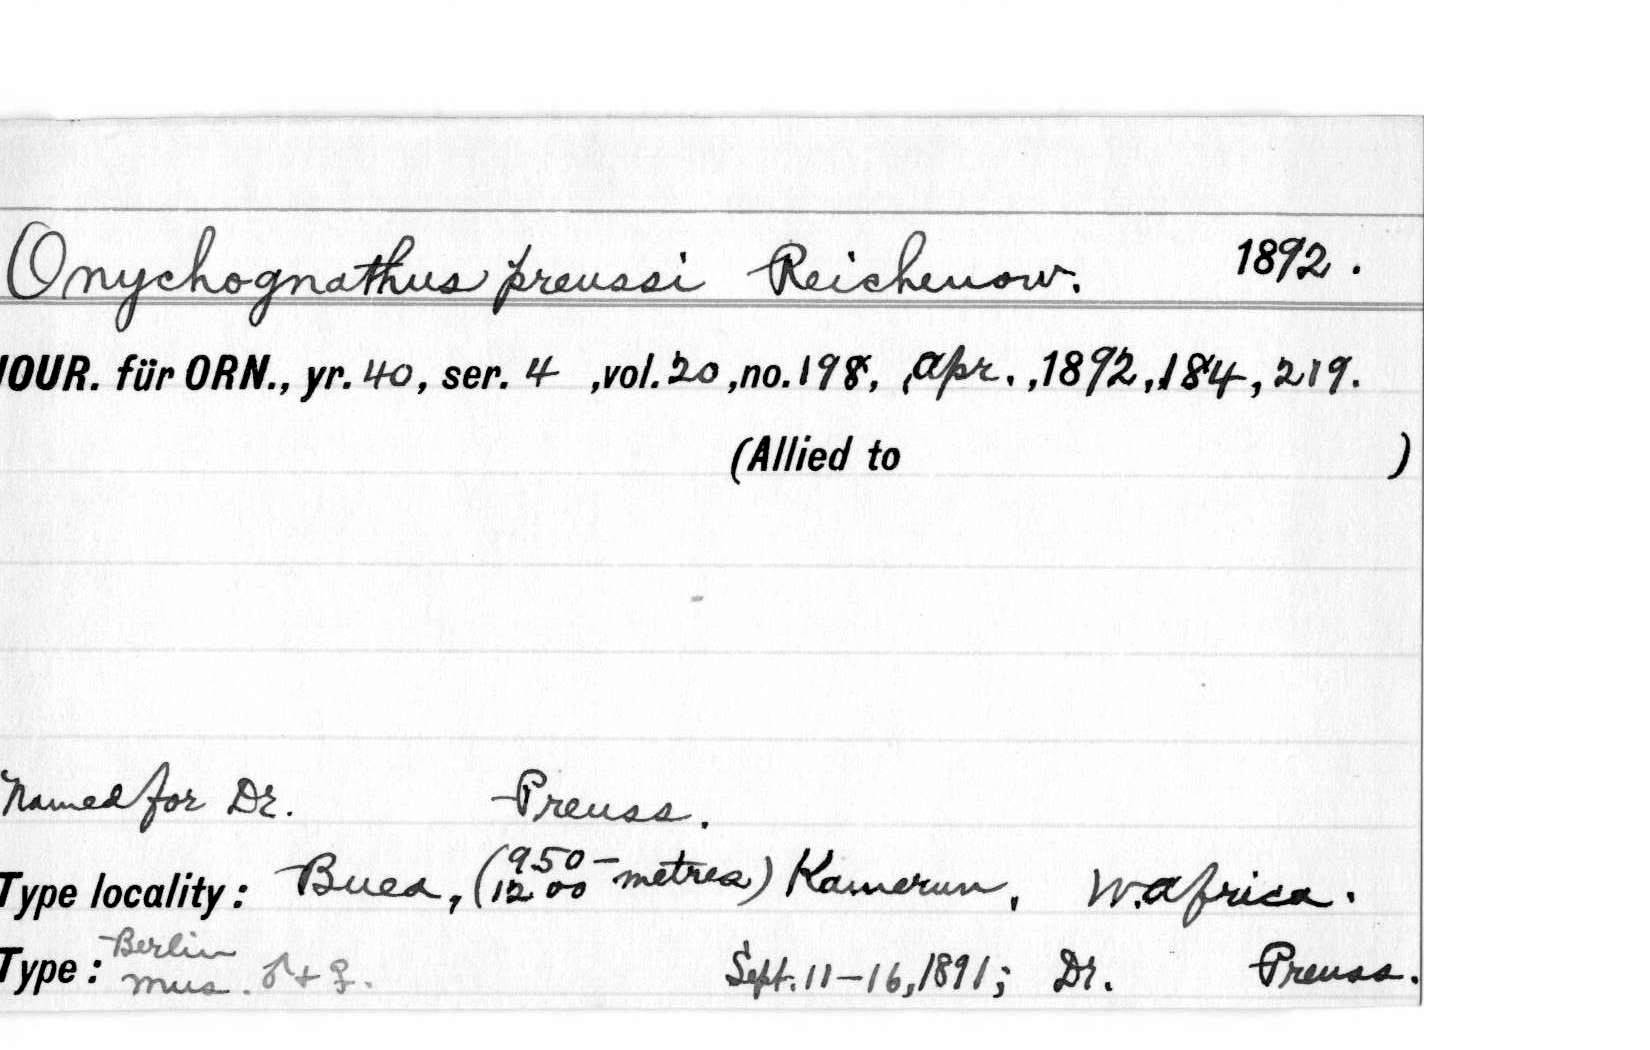 Onychognathus preussi Reichenow. 1892.
JOUR. für ORN., yr. 40, ser. 4, vol. 20, no. 198, Apr., 1892, 184, 219.
(Allied to )
Named for Dr. Preuss.
Type locality: Buea, (950–1200 metres) Kamerun, W. Africa.
Type: Berlin Mus. ♂ + ♀. Sept. 11–16, 1891; Dr. Preuss.